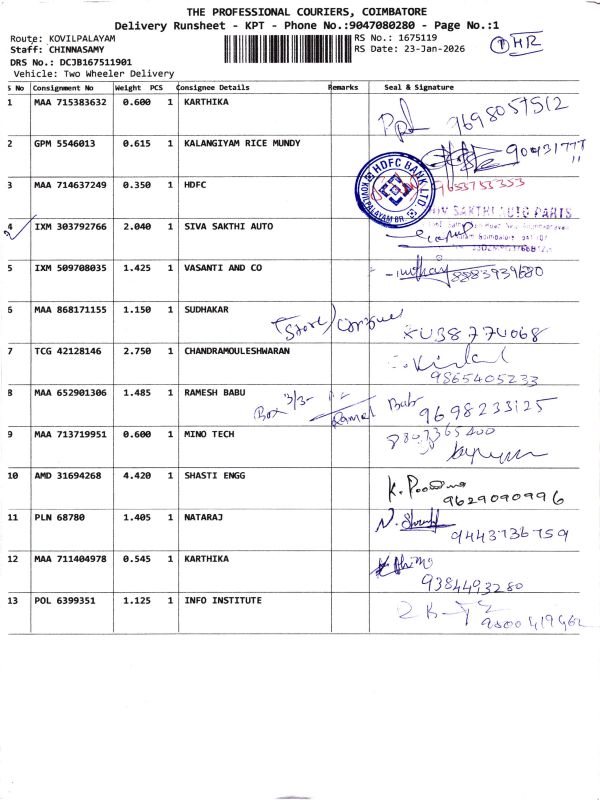 THE PROFESSIONAL COURIERS, COIMBATORE
Delivery Runsheet - KPT - Phone No.:9047080280 - Page No.:1
Route: KOVILPALAYAM
RS No.: 1675119
1 HR
Staff: CHINNASAMY
RS Date: 23-Jan-2026
DRS No.: DCJB167511901
Vehicle: Two Wheeler Delivery
S No Consignment No Weight PCS Consignee Details Remarks Seal & Signature
1 MAA 715383632 0.600 1 KARTHIKA
9698057512
2 GPM 5546013 0.615 1 KALANGIYAM RICE MUNDY
3 MAA 714637249 0.350 1 HDFC
HDFC BANK LTD
KOVILPALAYAM BR
4 IXM 303792766 2.040 1 SIVA SAKTHI AUTO
SAKTHI AUTO PARTS
5 IXM 509708035 1.425 1 VASANTI AND CO
8883939680
6 MAA 868171155 1.150 1 SUDHAKAR
Store/
7 TCG 42128146 2.750 1 CHANDRAMOULESHWARAN
9865405233
8 MAA 652901306 1.485 1 RAMESH BABU
Box 3/3-
Ramesh Babu 9698233125
9 MAA 713719951 0.600 1 MINO TECH
10 AMD 31694268 4.420 1 SHASTI ENGG
9629090996
11 PLN 68780 1.405 1 NATARAJ
9443736759
12 MAA 711404978 0.545 1 KARTHIKA
9384493280
13 POL 6399351 1.125 1 INFO INSTITUTE